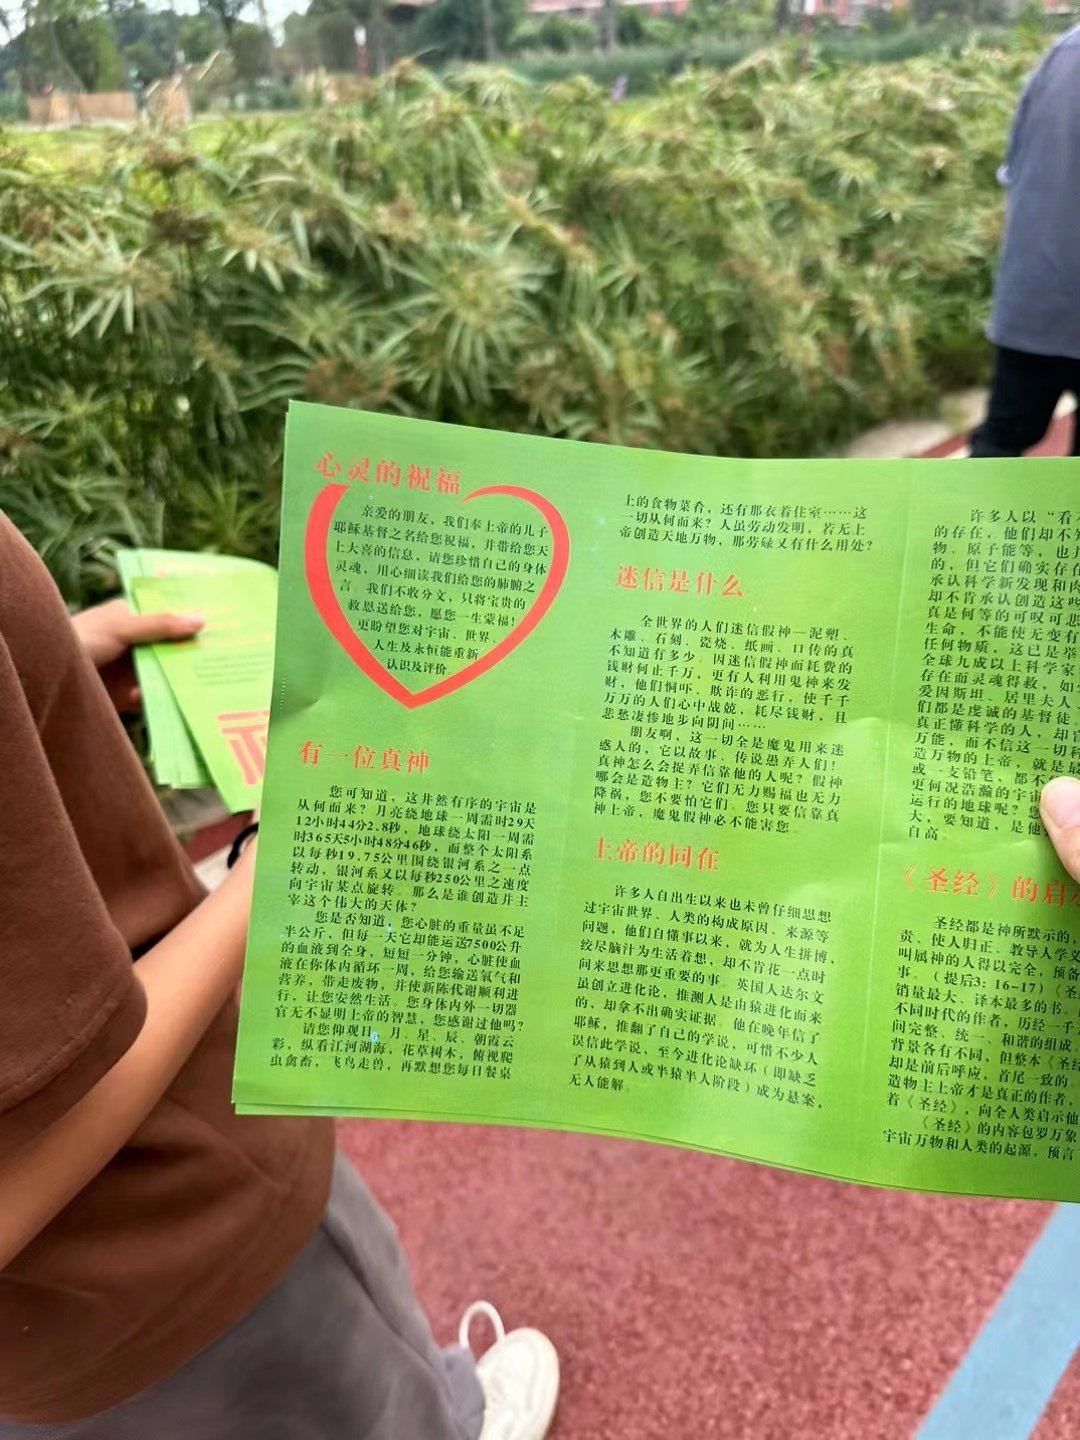 心灵的祝福
亲爱的朋友，我们奉上帝的儿子
耶稣基督之名给您祝福，并带给您天
上大喜的信息，请您珍惜自己的身体
灵魂，用心细读我们给您的肺腑之
言。我们不收分文，只将宝贵的
救恩送给您，愿您一生蒙福！
更盼望您对宇宙、世界、
人生及永恒能重新
认识及评价。
有一位真神
您可知道，这井然有序的宇宙是
从何而来？月亮绕地球一周需时29天
12小时44分2.8秒，地球绕太阳一周需
时365天5小时48分46秒，而整个太阳系
以每秒19.75公里围绕银河系之一点
转动，银河系又以每秒250公里之速度
向宇宙某点旋转。那么是谁创造并主
宰这个伟大的天体？
您是否知道，您心脏的重量虽不足
半公斤，但每一天它却能运送7500公升
的血液到全身，短短一分钟，心脏使血
液在你体内循环一周，给您输送氧气和
营养，带走废物，并使新陈代谢顺利进
行，让您安然生活。您身体内外一切器
官无不显明上帝的智慧，您感谢过他吗？
请您仰观日、月、星、辰、朝霞云
彩，纵看江河湖海，花草树木，俯视爬
虫禽畜，飞鸟走兽，再默想您每日餐桌
上的食物菜肴，还有那衣着住室……这
一切从何而来？人虽劳动发明，若无上
帝创造天地万物，那劳碌又有什么用处？
迷信是什么
全世界的人们迷信假神—泥塑、
木雕、石刻、瓷烧、纸画、口传的真
不知道有多少。因迷信假神而耗费的
钱财何止千万，更有人利用鬼神来发
财，他们恫吓、欺诈的恶行，使千千
万万的人们心中战兢，耗尽钱财，且
悲愁凄惨地步向阴间……
朋友啊，这一切全是魔鬼用来迷
惑人的，它以故事、传说愚弄人们！
真神怎么会捉弄信靠他的人呢？假神
哪会是造物主？它们无力赐福也无力
降祸，您不要怕它们。您只要信靠真
神上帝，魔鬼假神必不能害您。
上帝的同在
许多人自出生以来也未曾仔细思想
过宇宙世界、人类的构成原因、来源等
问题，他们自懂事以来，就为人生拼搏，
绞尽脑汁为生活着想，却不肯花一点时
间来思想那更重要的事。英国人达尔文
虽创立进化论，推测人是由猿进化而来
的，却拿不出确实证据。他在晚年信了
耶稣，推翻了自己的学说，可惜不少人
误信此学说，至今进化论缺环（即缺乏
了从猿到人或半猿半人阶段）成为悬案，
无人能解。
许多人以“看不
的存在，他们却不知
物、原子能等，也并
的，但它们确实存在
承认科学新发现和肉
却不肯承认创造这些
真是何等的可叹可悲
生命，不能使无变有
任何物质，这已是举
全球九成以上科学家
存在而灵魂得救，如
爱因斯坦、居里夫人
们都是虔诚的基督徒。
真正懂科学的人，却
万能，而不信这一切科
造万物的上帝，就是最
或一支铅笔，都不
更何况浩瀚的宇宙
运行的地球呢？您
大，要知道，是他
自高。
《圣经》的启
圣经都是神所默示的，
责、使人归正、教导人学义
叫属神的人得以完全，预备
事。（提后3：16-17）《圣
销量最大、译本最多的书。
不同时代的作者，历经一千
间完整、统一、和谐的组成
背景各有不同，但整本《圣经
却是前后呼应，首尾一致的。
造物主上帝才是真正的作者，
着《圣经》，向全人类启示他
《圣经》的内容包罗万象
宇宙万物和人类的起源，预言